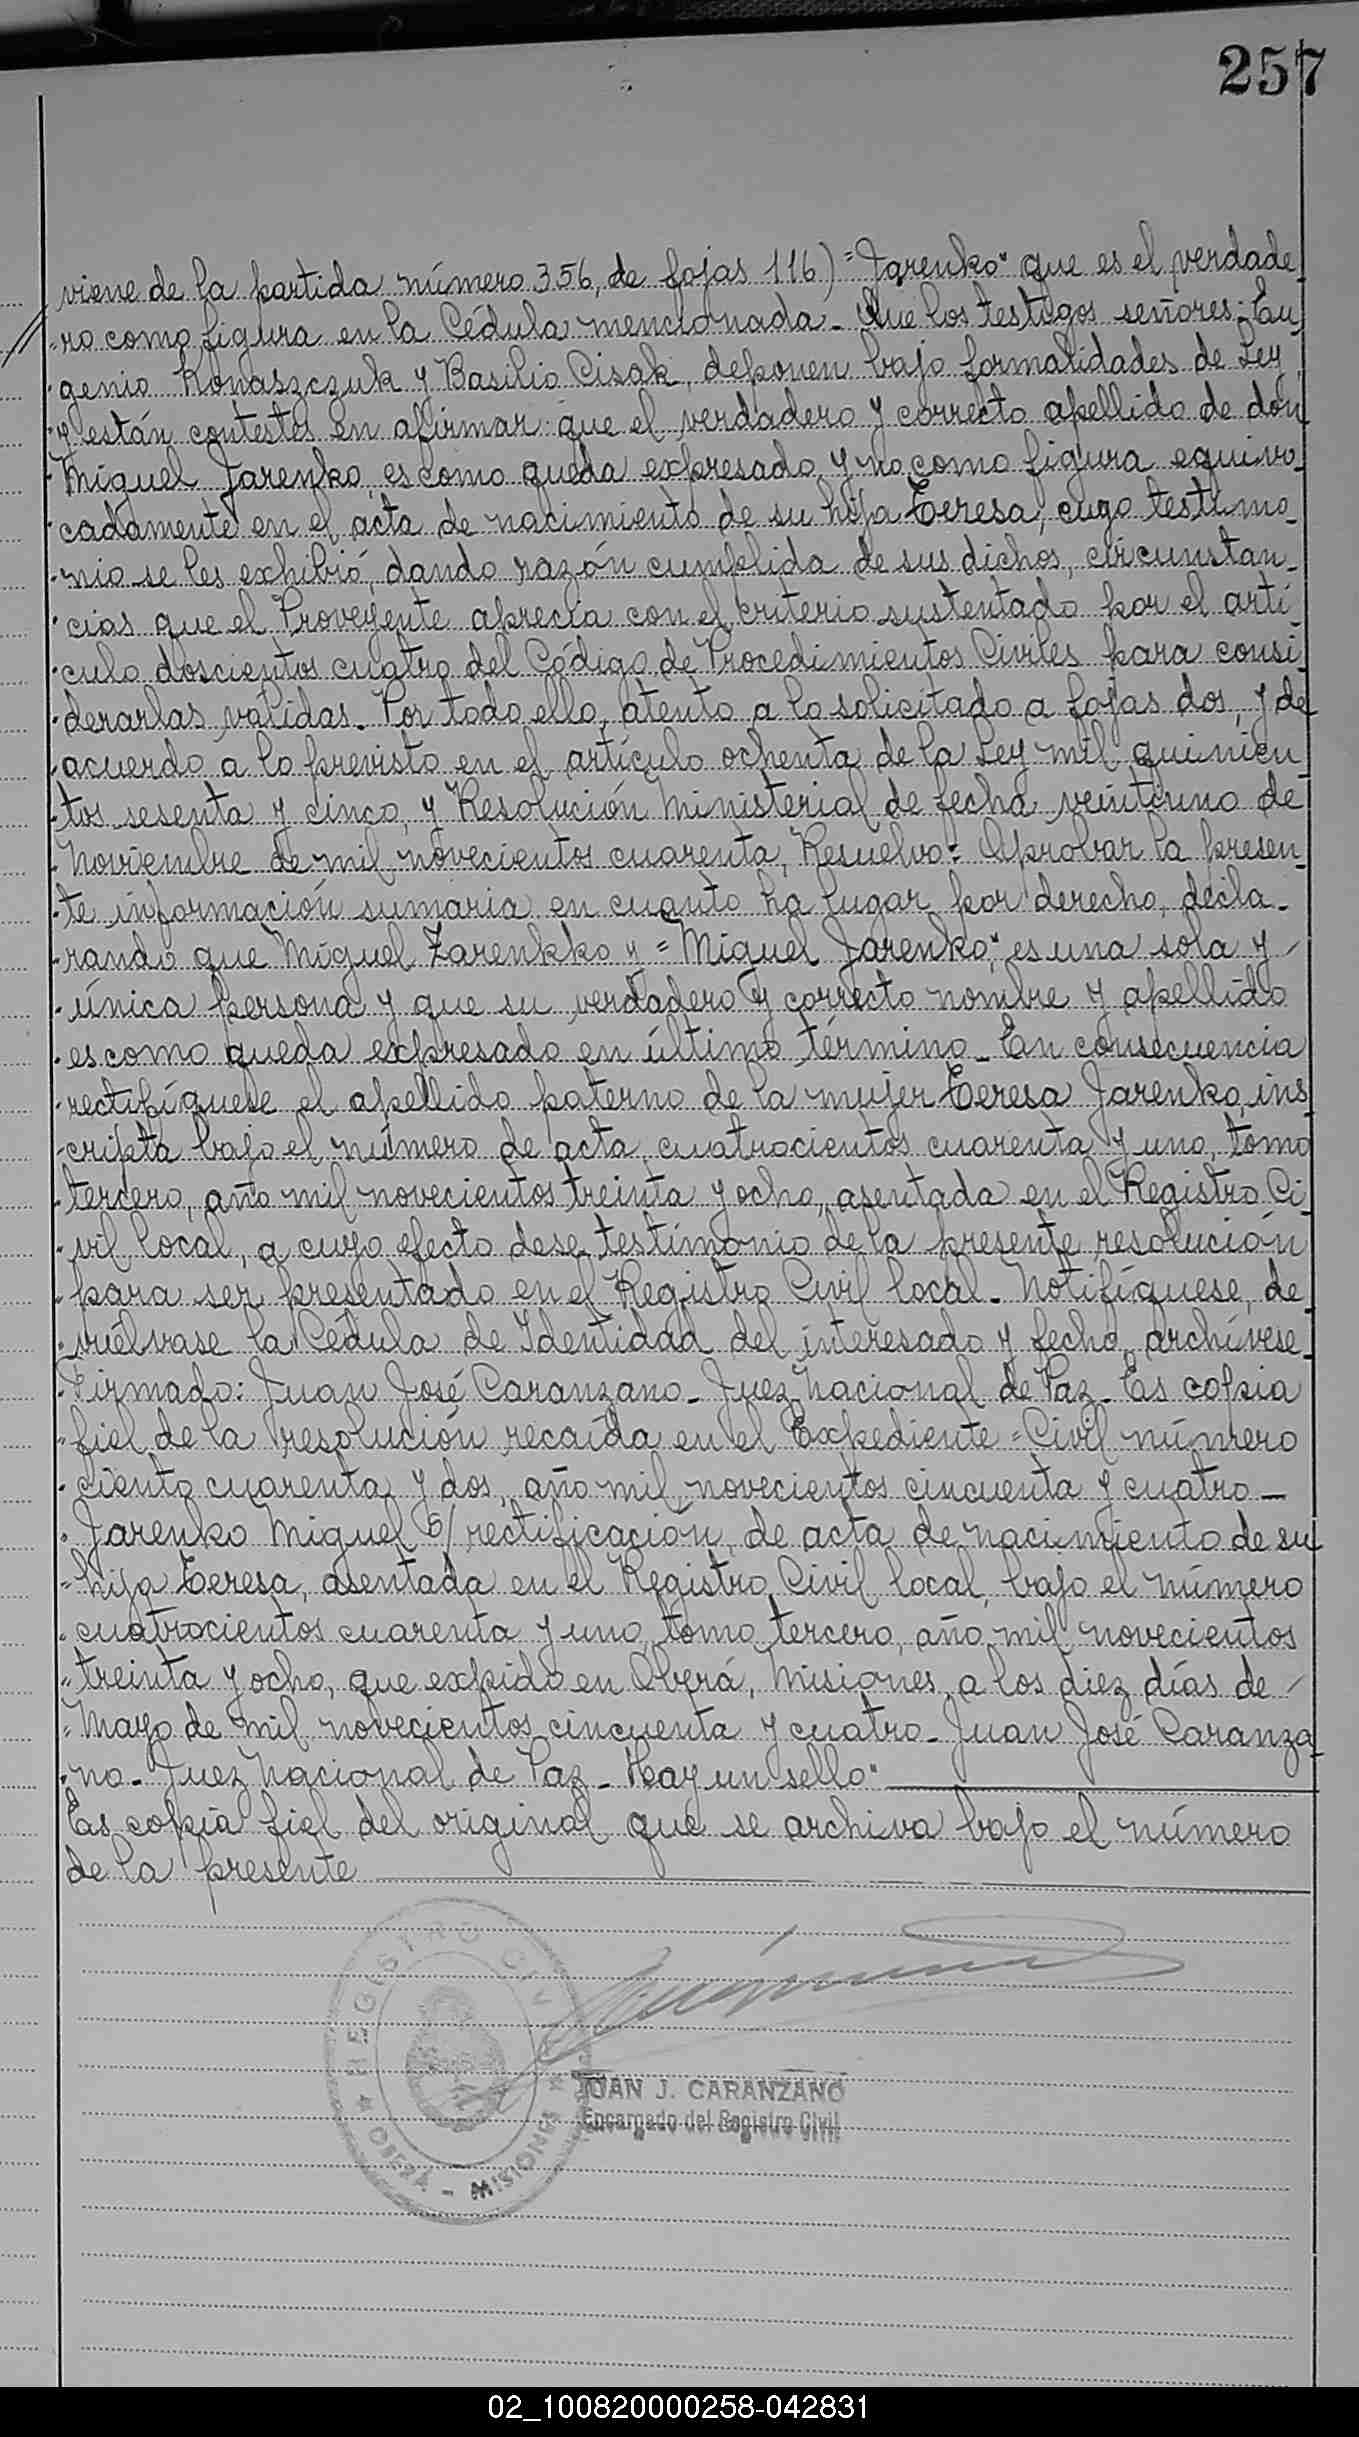 257
viene de la partida número 356, de fojas 116) "Jarenko" que es el verdade
"ro como figura en la Cédula mencionada. Que los testigos señores: Eu
"genio Ronaszczuk y Basilio Cisak, deponen bajo formalidades de Ley,
"y están contestes en afirmar: que el verdadero y correcto apellido de don
"Miguel Jarenko, es como queda expresado y no como figura equivo_
"cadamente en el acta de nacimiento de su hija Teresa, cuyo testimo_
"nio se les exhibió, dando razón cumplida de sus dichos, circunstan_
"cias que el Proveyente aprecia con el criterio sustentado por el artí
"culo doscientos cuatro del Código de Procedimientos Civiles para consi_
"derarlas válidas. Por todo ello, atento a lo solicitado a fojas dos, y de
"acuerdo a lo previsto en el artículo ochenta de la Ley mil quinien_
"tos sesenta y cinco, y Resolución Ministerial de fecha veintiuno de
"Noviembre de mil novecientos cuarenta, Resuelvo: Aprobar la presen_
"te información sumaria en cuanto ha lugar por derecho, decla_
"rando que Miguel Zarenkko y "Miguel Jarenko", es una sola y
"única persona y que su verdadero y correcto nombre y apellido
"es como queda expresado en último término_ En consecuencia
"rectifíquese el apellido paterno de la mujer Teresa Jarenko, ins_
"cripta bajo el número de acta cuatrocientos cuarenta y uno, tomo
"tercero, año mil novecientos treinta y ocho, asentada en el Registro Ci
"vil local, a cuyo efecto dese testimonio de la presente resolución
"para ser presentado en el Registro Civil local_ Notifíquese, de_
"vuélvase la Cédula de Identidad del interesado y fecho, archívese_
"Firmado: Juan José Caranzano_ Juez Nacional de Paz_ Es copia
"fiel de la resolución recaída en el Expediente = Civil número
"ciento cuarenta y dos, año mil novecientos cincuenta y cuatro_
"Jarenko Miguel s/ rectificación de acta de nacimiento de su
"hija Teresa, asentada en el Registro Civil local, bajo el número
"cuatrocientos cuarenta y uno, tomo tercero, año mil novecientos
"treinta y ocho, que expido en Oberá, Misiones, a los diez días de
"Mayo de mil novecientos cincuenta y cuatro_ Juan José Caranza_
"no_ Juez Nacional de Paz_ Hay un sello"
Es copia fiel del original que se archiva bajo el número
de la presente
REGISTRO CIVIL
OBERÁ - MISIONES
JUAN J. CARANZANO
Encargado del Registro Civil
02_100820000258-042831